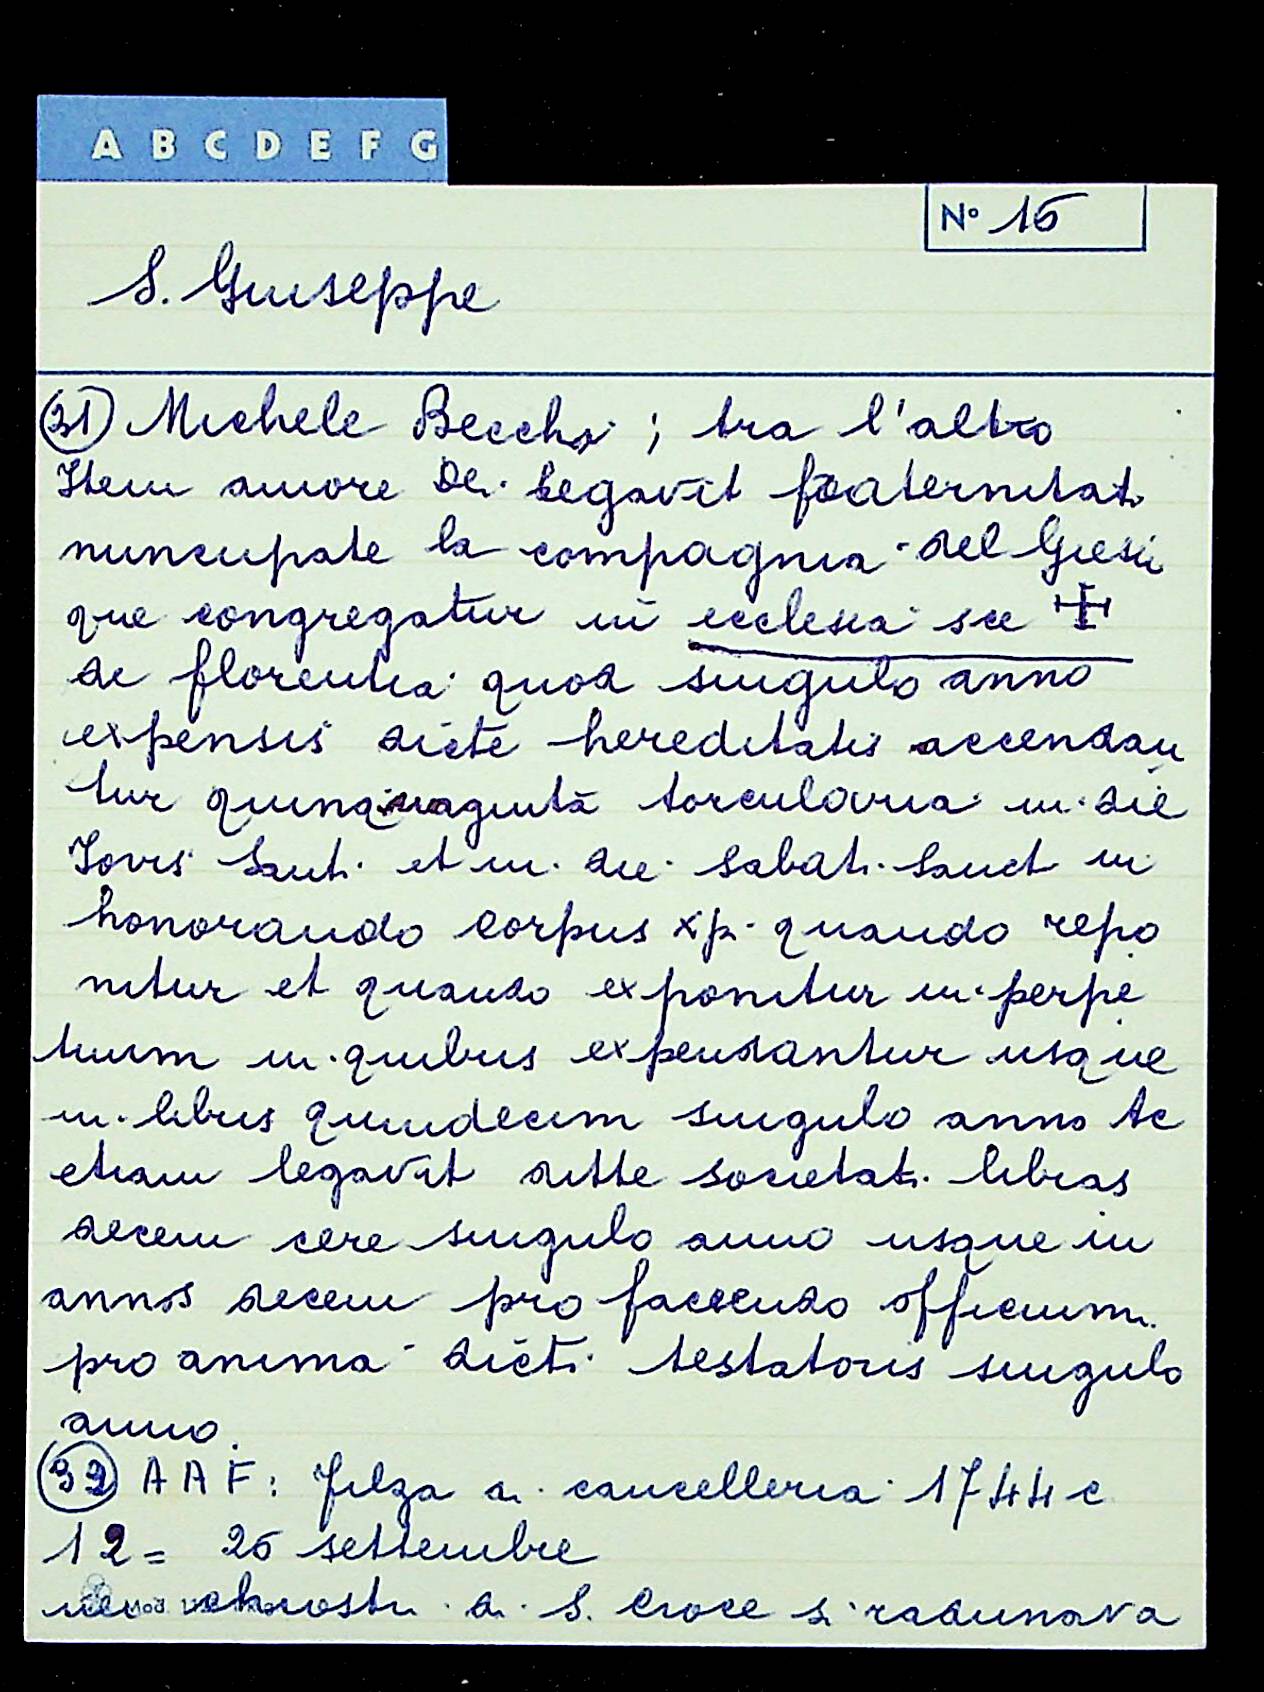 A B C D E F G
N° 16
S. Giuseppe
(31) Michele Becchi; tra l'altro
Item amore Dei legavit fraternitati
nuncupate la compagnia del Giesù
que congregatur in ecclesia sce ☩
de florentia quod singulo anno
expensis dicte hereditatis accendan
tur quinquaginta torcularia in die
Jovis Santi et in die sabati Sanct in
honorando corpus xpi quando repo
nitur et quando exponitur in perpe
tuum in quibus expendantur usque
in libris quindecim singulo anno Ac
etiam legavit ditte societati libras
decem cere singulo anno usque in
annos decem pro faciendo officium
pro anima dicti testatoris singulo
anno.
(32) AAF: filza di cancelleria 1744 c
12 = 26 settembre
nei chiostri di S. Croce si radunava